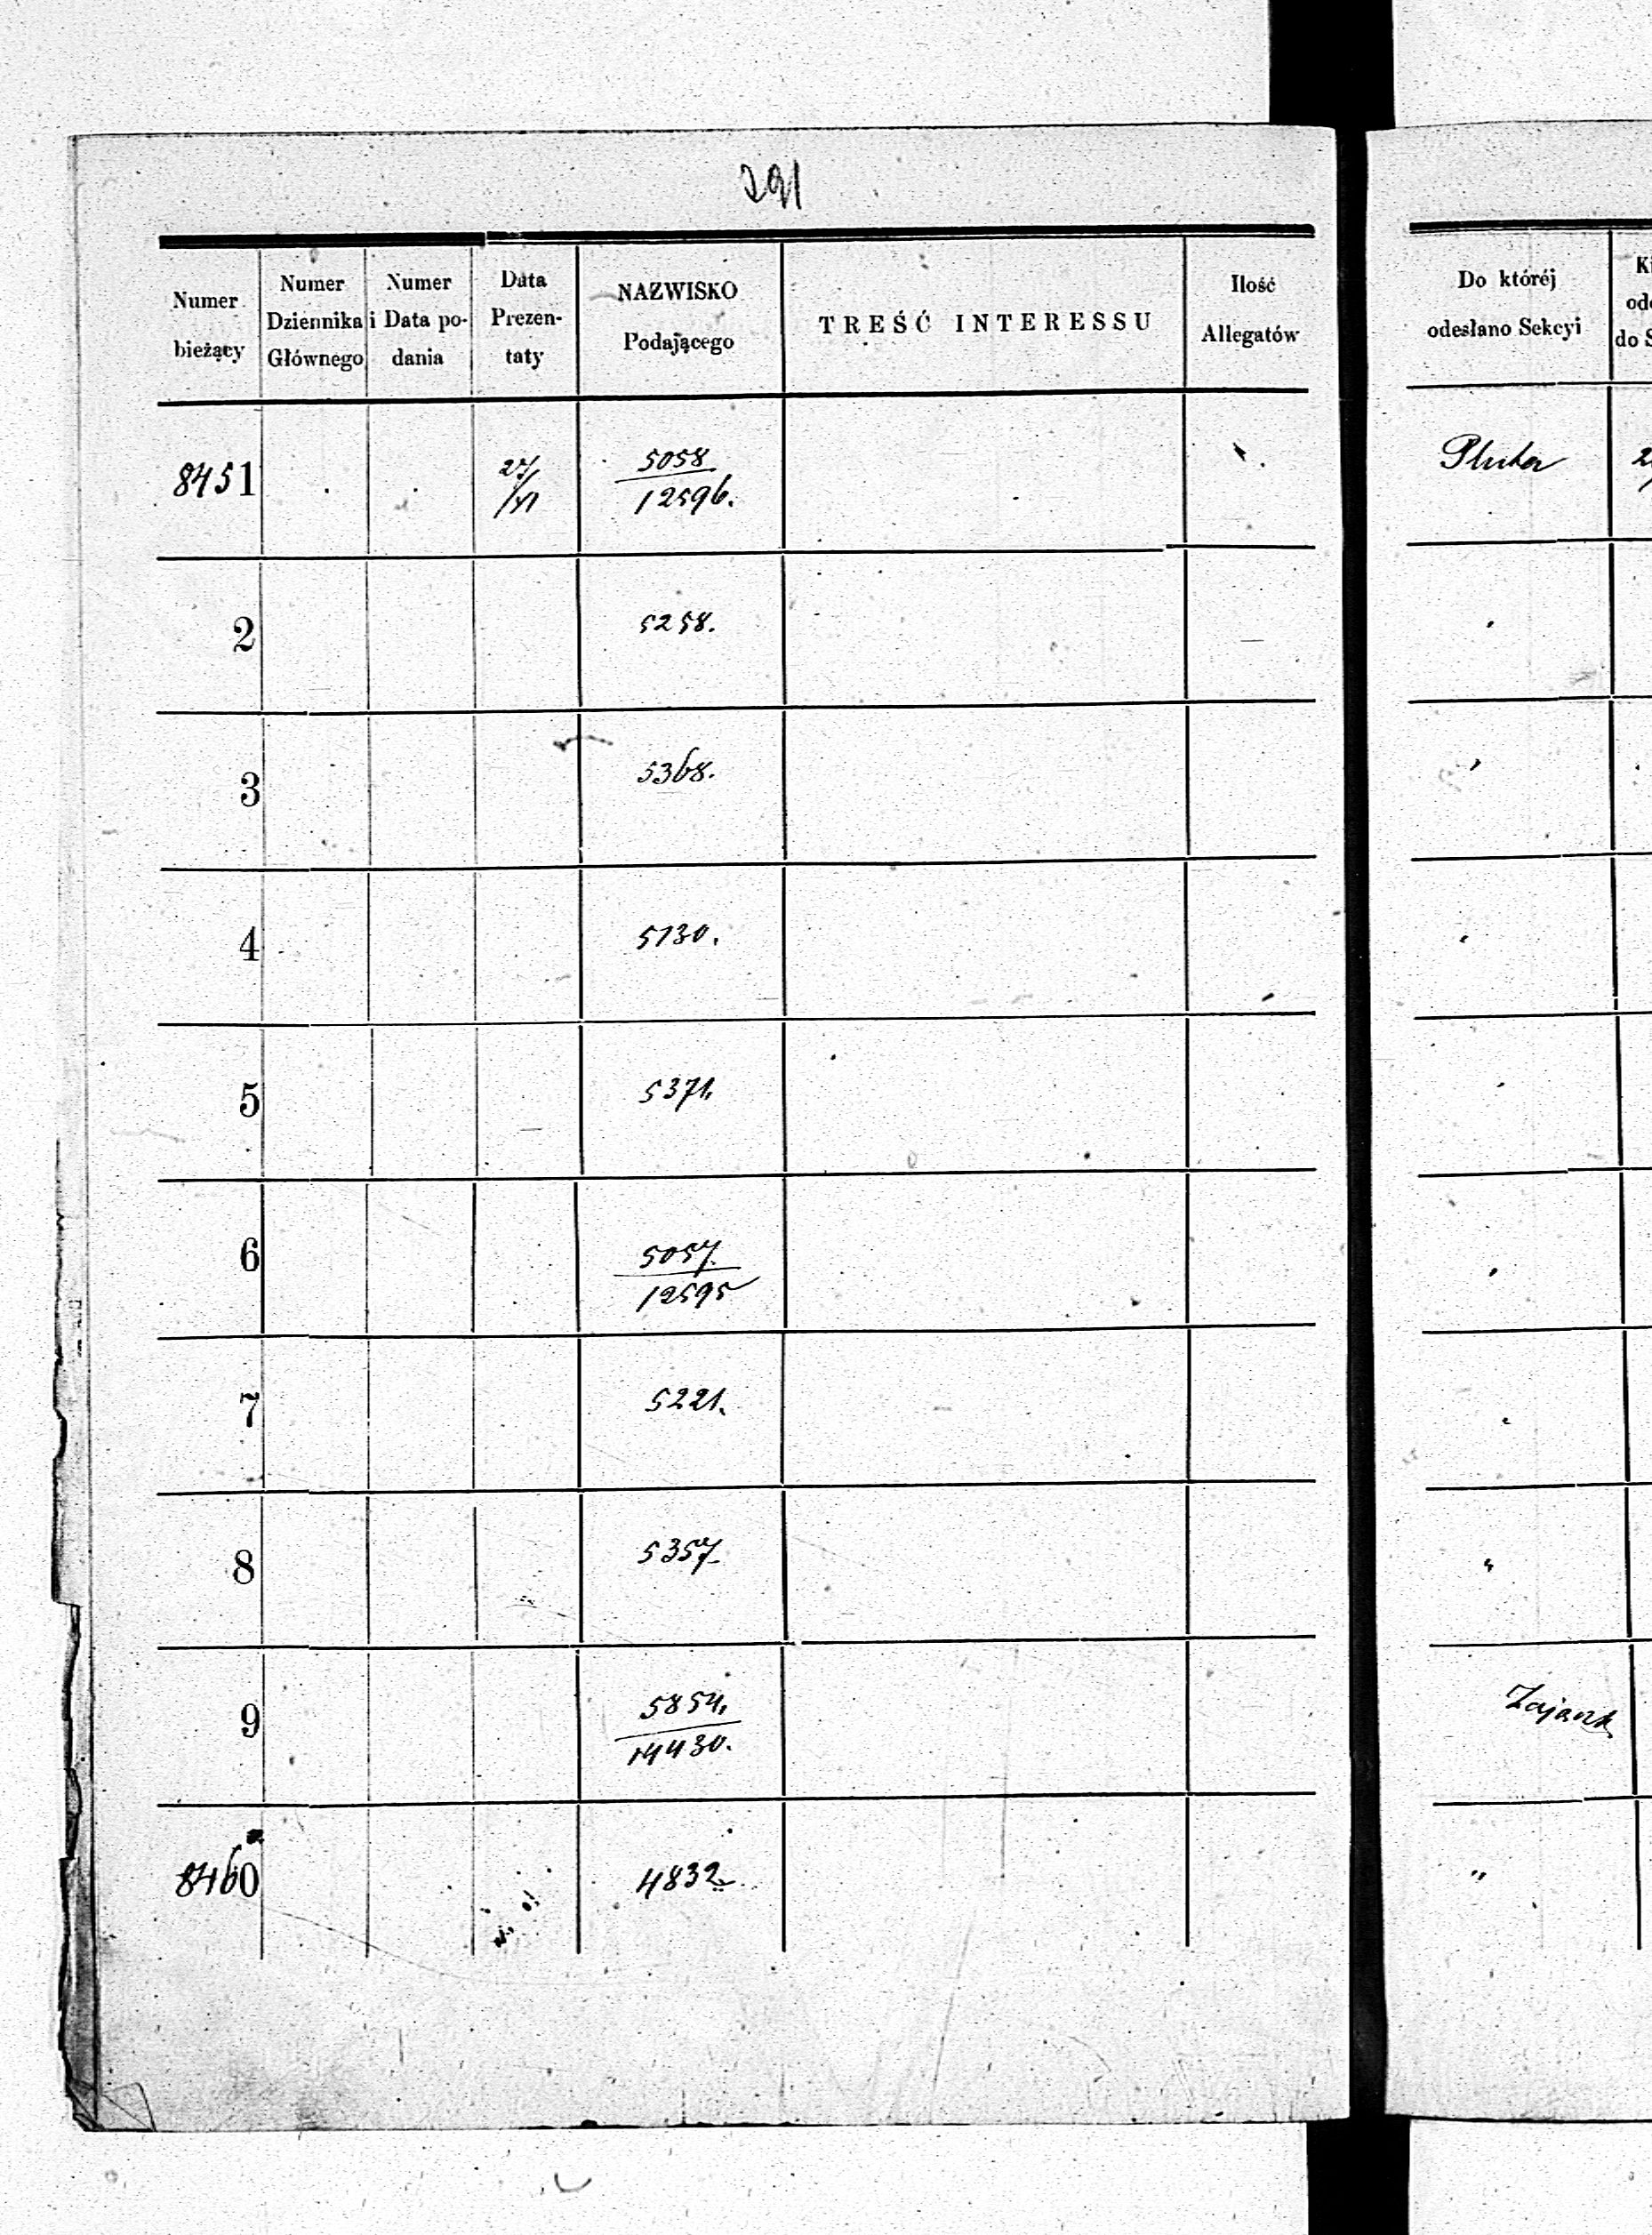 291
Numer bieżący
Numer Dziennika Głównego
Numer i Data podania
Data Prezentaty
NAZWISKO Podającego
TREŚĆ INTERESSU
Ilość Allegatów
Do któréj odesłano Sekcyi
8451 27/XI 5058/12596. Pluta
2 5258.
3 5368.
4 5130.
5 5371.
6 5057/12595
7 5221.
8 5357
9 5854./14430.
8460 4832 "